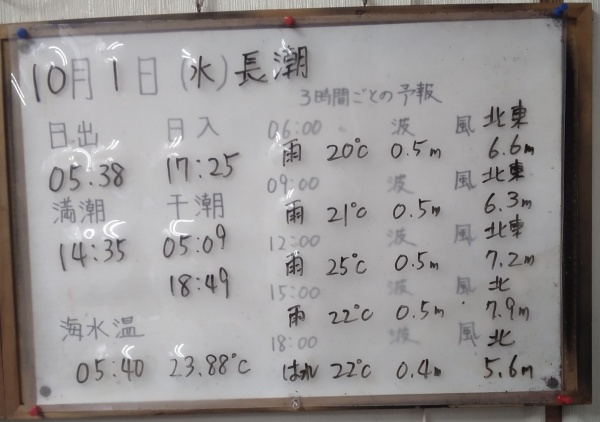 10月1日(水)長潮
3時間ごとの予報
日出 日入
05.38 17:25
満潮 干潮
14:35 05:09
18:49
海水温
05:40 23.88℃
06:00 波 風 北東
雨 20℃ 0.5m 6.6m
09:00 波 風 北東
雨 21℃ 0.5m 6.3m
12:00 波 風 北東
雨 25℃ 0.5m 7.2m
15:00 波 風 北
雨 22℃ 0.5m 7.9m
18:00 波 風 北
はれ 22℃ 0.4m 5.6m